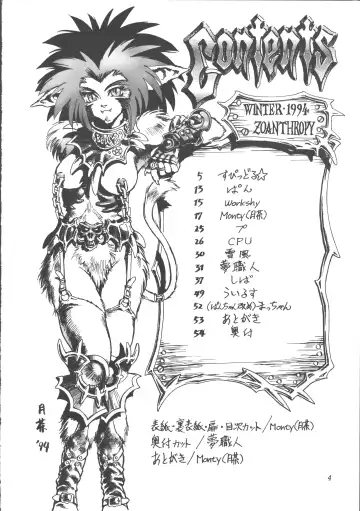 Contents
WINTER・1994
ZOANTHROPY
5 すぴっどる☆
13 ぱん
15 Workshy
17 Monty(月蔡)
25 プ
26 CPU
30 雷風
31 夢職人
37 しば
49 ういろす
52 (ぱんちゃん改め)まっちゃん
53 あとがき
54 奥付
表紙・裏表紙・扉・目次カット/Monty(月蔡)
奥付カット/夢職人
あとがき/Monty(月蔡)
月蔡
'94
4